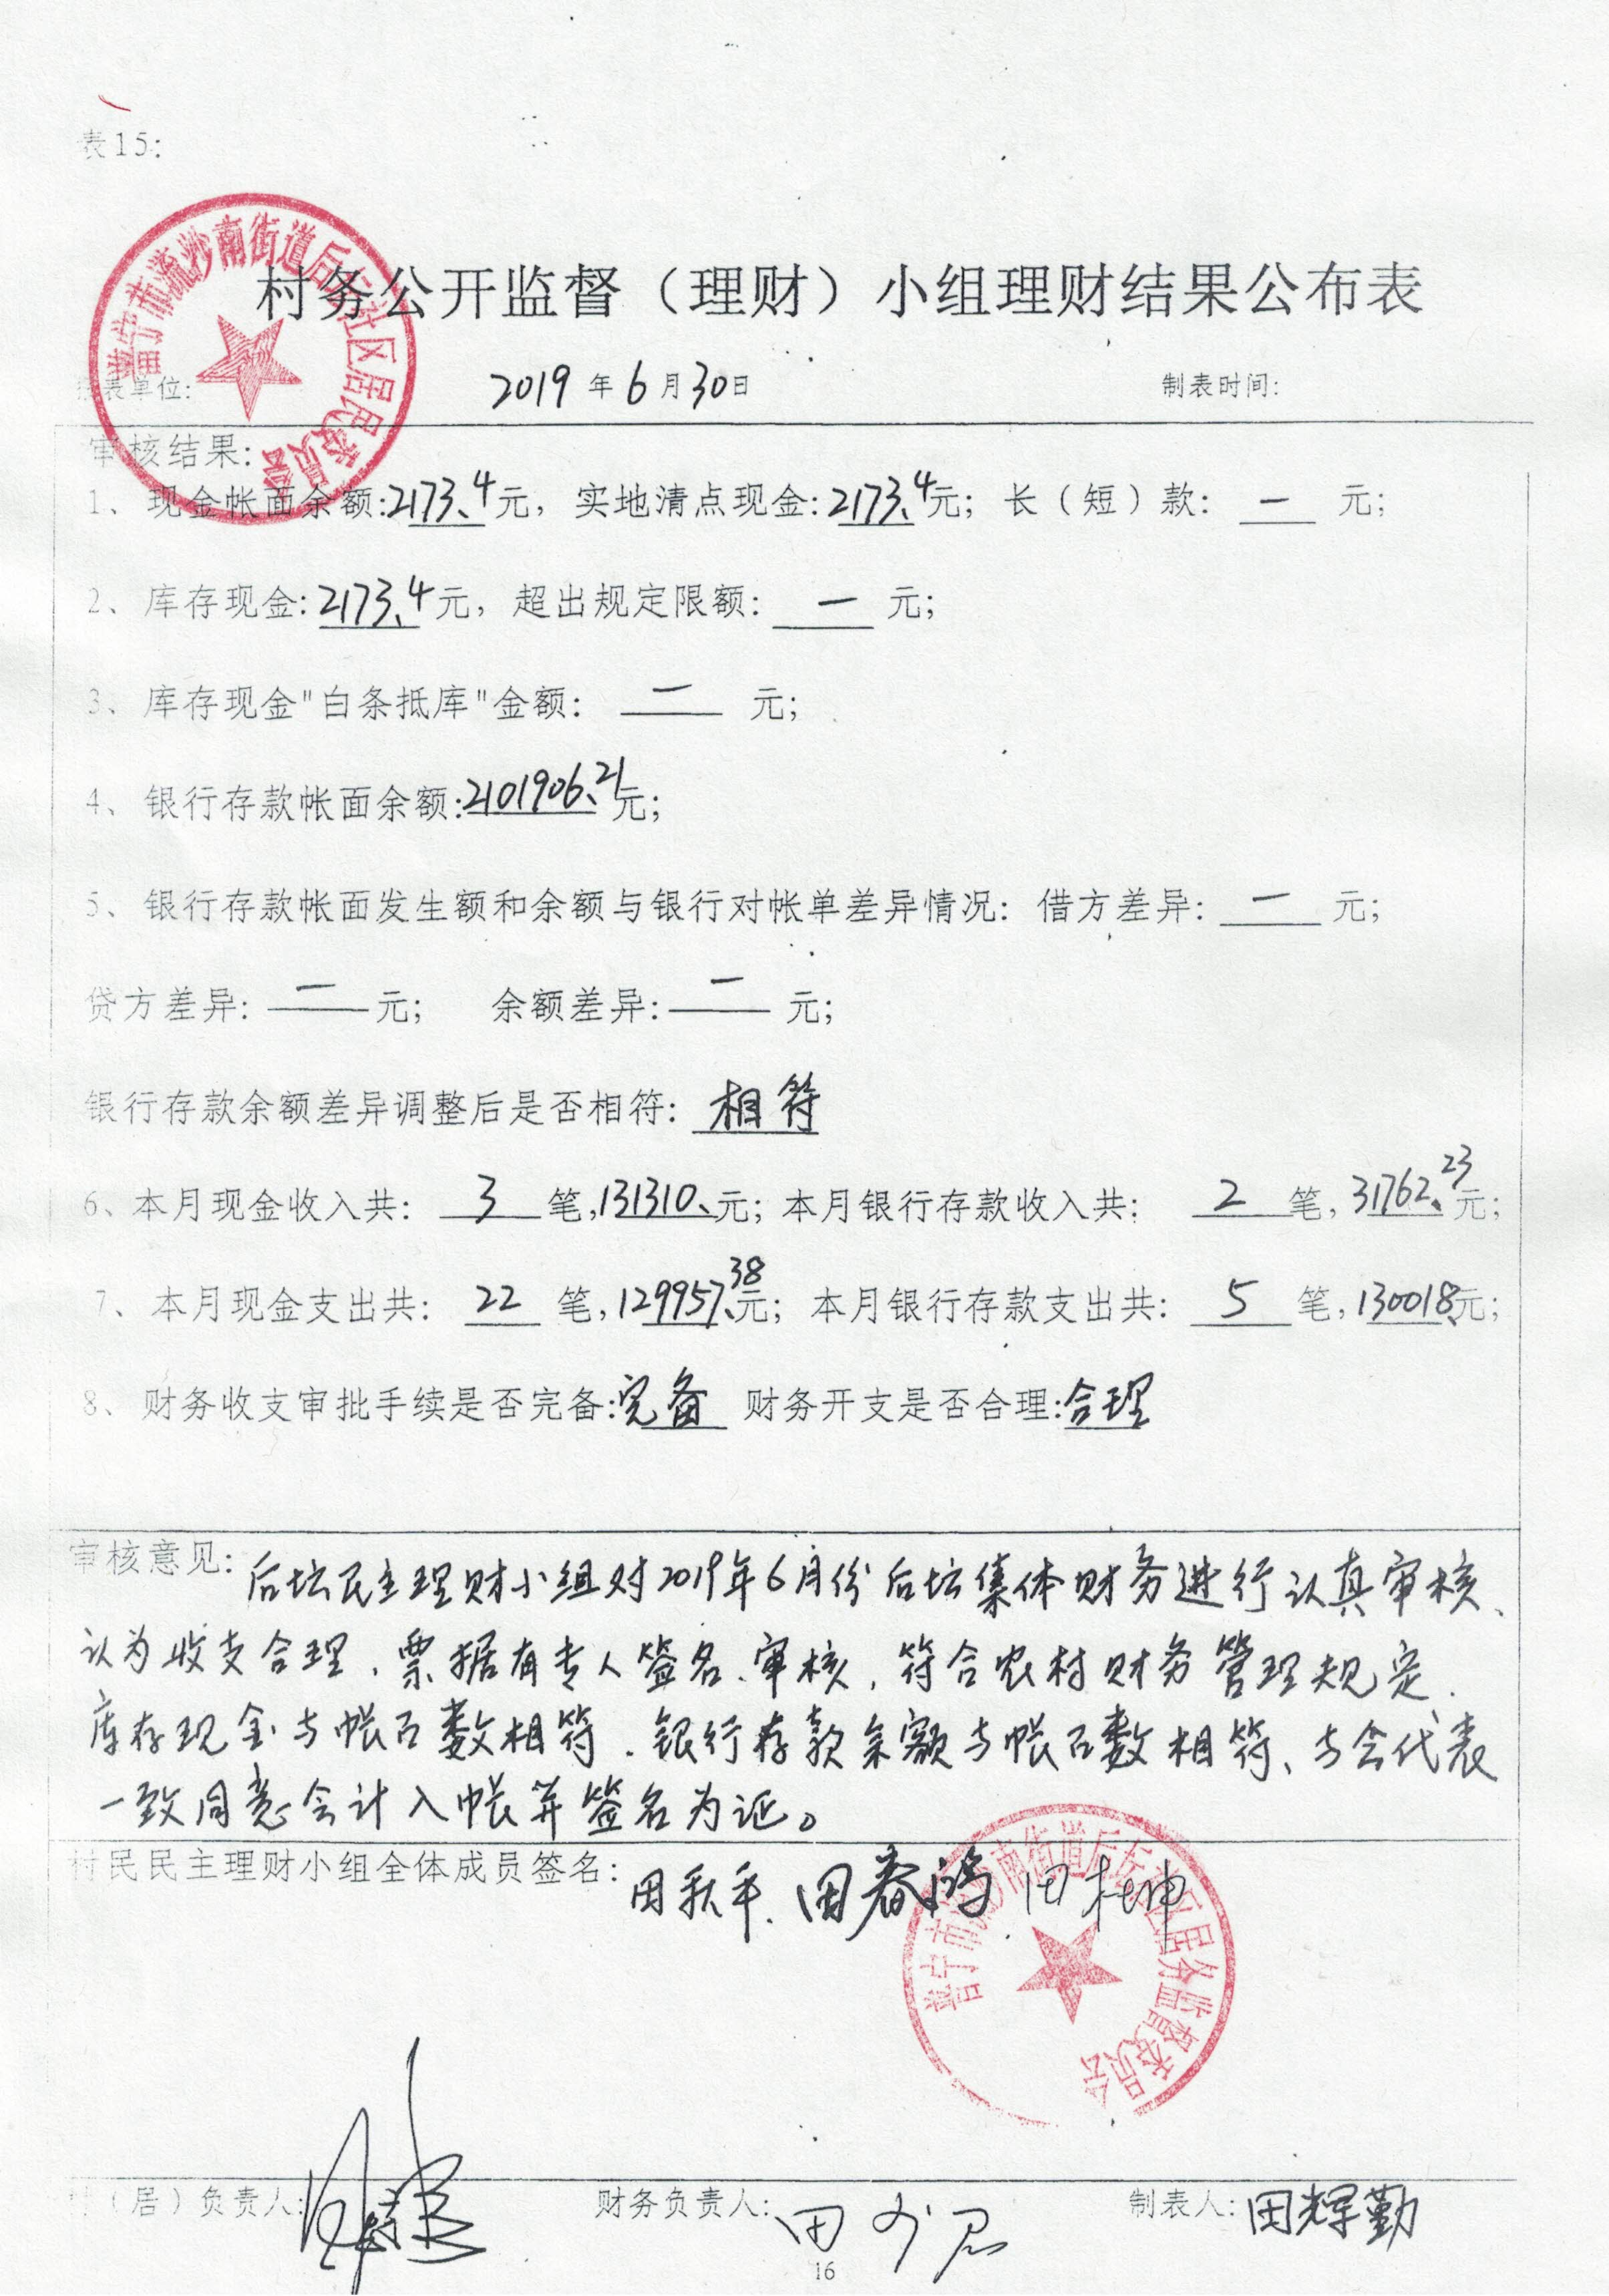 表15:
普宁市流沙南街道后坛社区居民委员会
村务公开监督（理财）小组理财结果公布表
表单位: 2019年6月30日 制表时间:
审核结果:
1、现金帐面余额:2173.4元，实地清点现金:2173.4元；长（短）款: — 元；
2、库存现金:2173.4元，超出规定限额: — 元；
3、库存现金"白条抵库"金额: — 元；
4、银行存款帐面余额:2101906.21元；
5、银行存款帐面发生额和余额与银行对帐单差异情况: 借方差异: — 元；
贷方差异: — 元； 余额差异: — 元；
银行存款余额差异调整后是否相符: 相符
6、本月现金收入共: 3 笔,131310.元；本月银行存款收入共: 2 笔, 31762.23元；
7、本月现金支出共: 22 笔,129957.38元；本月银行存款支出共: 5 笔,130018.元；
8、财务收支审批手续是否完备:完备 财务开支是否合理:合理
审核意见: 后坛民主理财小组对2019年6月份后坛集体财务进行认真审核、
认为收支合理、票据有专人签名、审核，符合农村财务管理规定、
库存现金与帐面数相符、银行存款余额与帐面数相符、与会代表
一致同意会计入帐并签名为证。
村民民主理财小组全体成员签名: 田秋平、田春鸿 田桂坤
普宁市流沙南街道后坛社区居务监督委员会
（居）负责人: 财务负责人: 田 制表人: 田辉勤
16